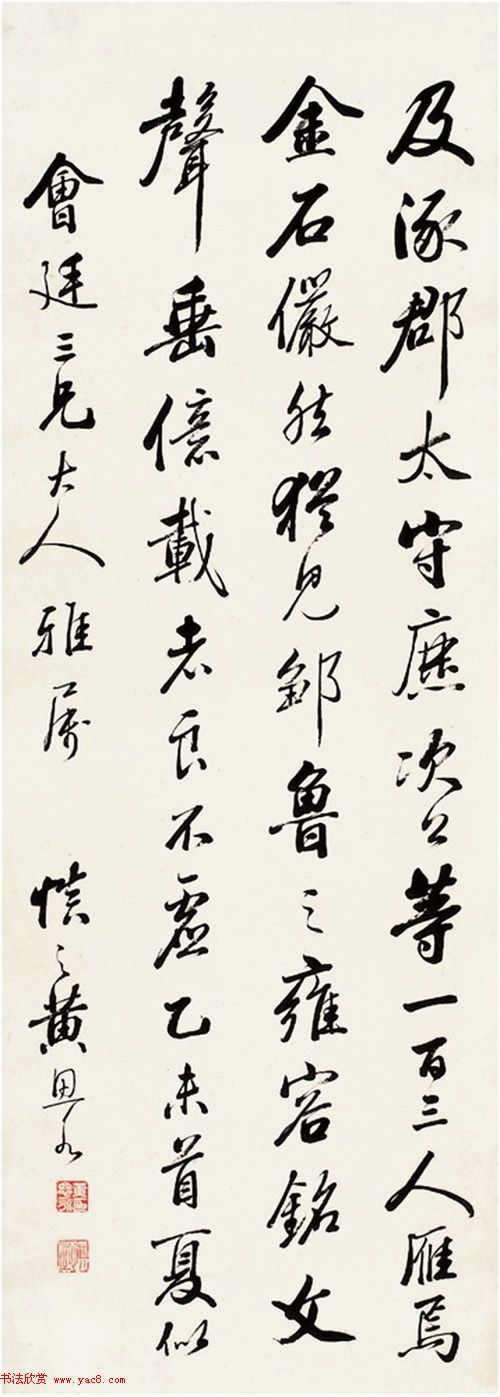 及涿郡太守麃次公等一百三人雁焉
金石儼然猶見鄒魯之雍容銘文
聲垂億載者良不虛乙未首夏似
會廷三兄大人雅屬 慎之黃思永
书法欣赏 www.yac8.com